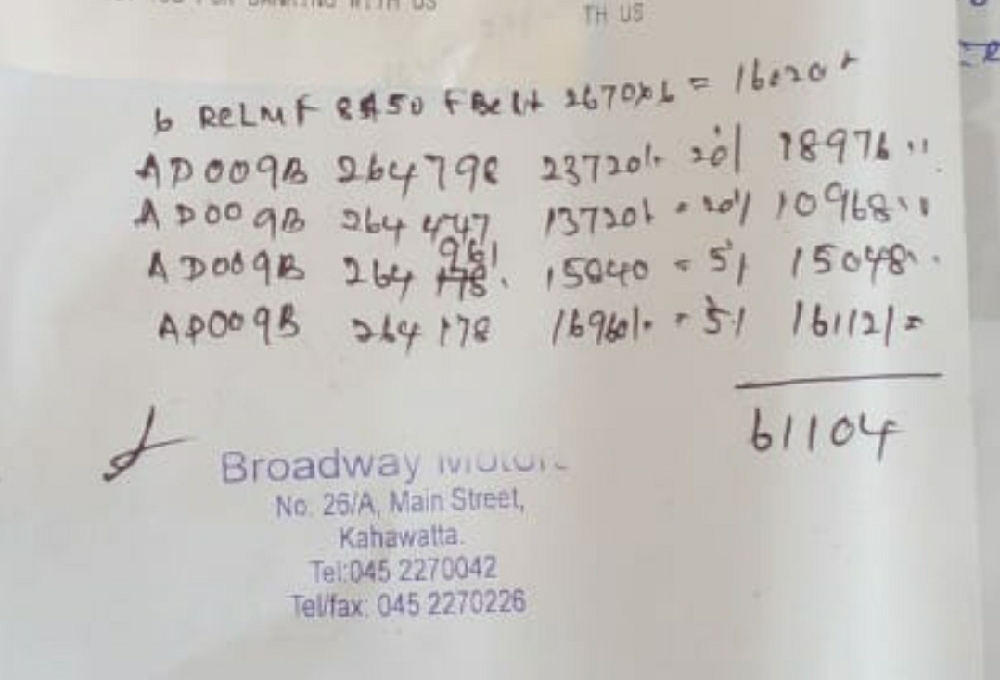 TH US
6 RELMF 8450 F Belt 2670x6 = 16020
AD009B 264798 23720/- 20% 18976"
AD009B 264447 13720/- 20% 10968"
AD009B 264 961 15840 = 5% 15048"
AD009B 264178 16960/- = 5% 16112/=
61104
Broadway Motors
No. 26/A, Main Street,
Kahawatta.
Tel:045 2270042
Tel/fax: 045 2270226